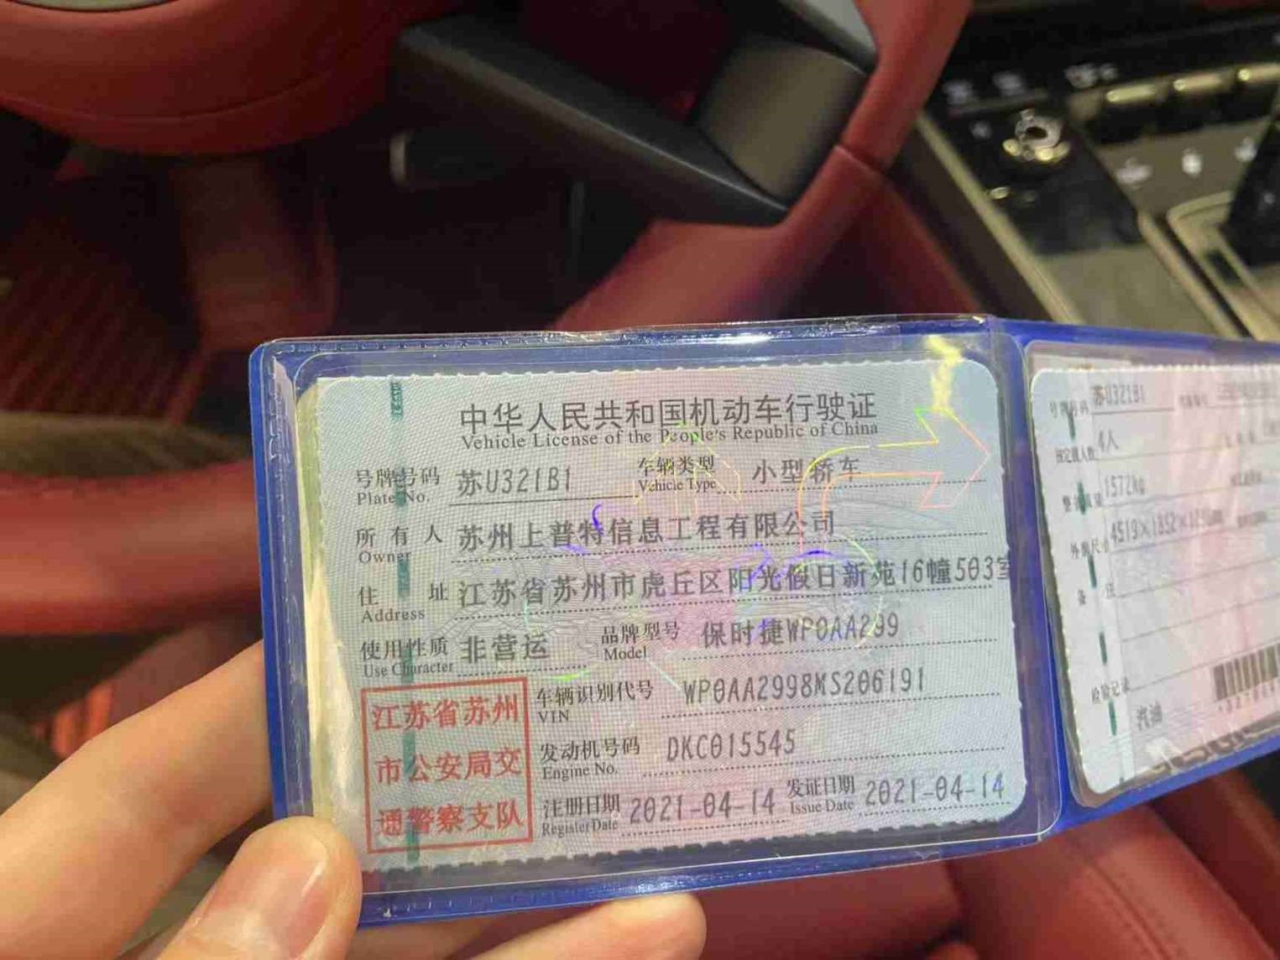 中华人民共和国机动车行驶证
Vehicle License of the People's Republic of China
号牌号码 苏U321B1 车辆类型 小型轿车
Plate No. Vehicle Type
所有人 苏州上普特信息工程有限公司
Owner
住址 江苏省苏州市虎丘区阳光假日新苑16幢503室
Address
使用性质 非营运 品牌型号 保时捷WP0AA299
Use Character Model
江苏省苏州
市公安局交
通警察支队
车辆识别代号 WP0AA2998MS206191
VIN
发动机号码 DKC015545
Engine No.
注册日期 2021-04-14 发证日期 2021-04-14
Register Date Issue Date
号牌号码 苏U321B1
4人
1572kg
外廓尺寸
备注
检验记录
汽油